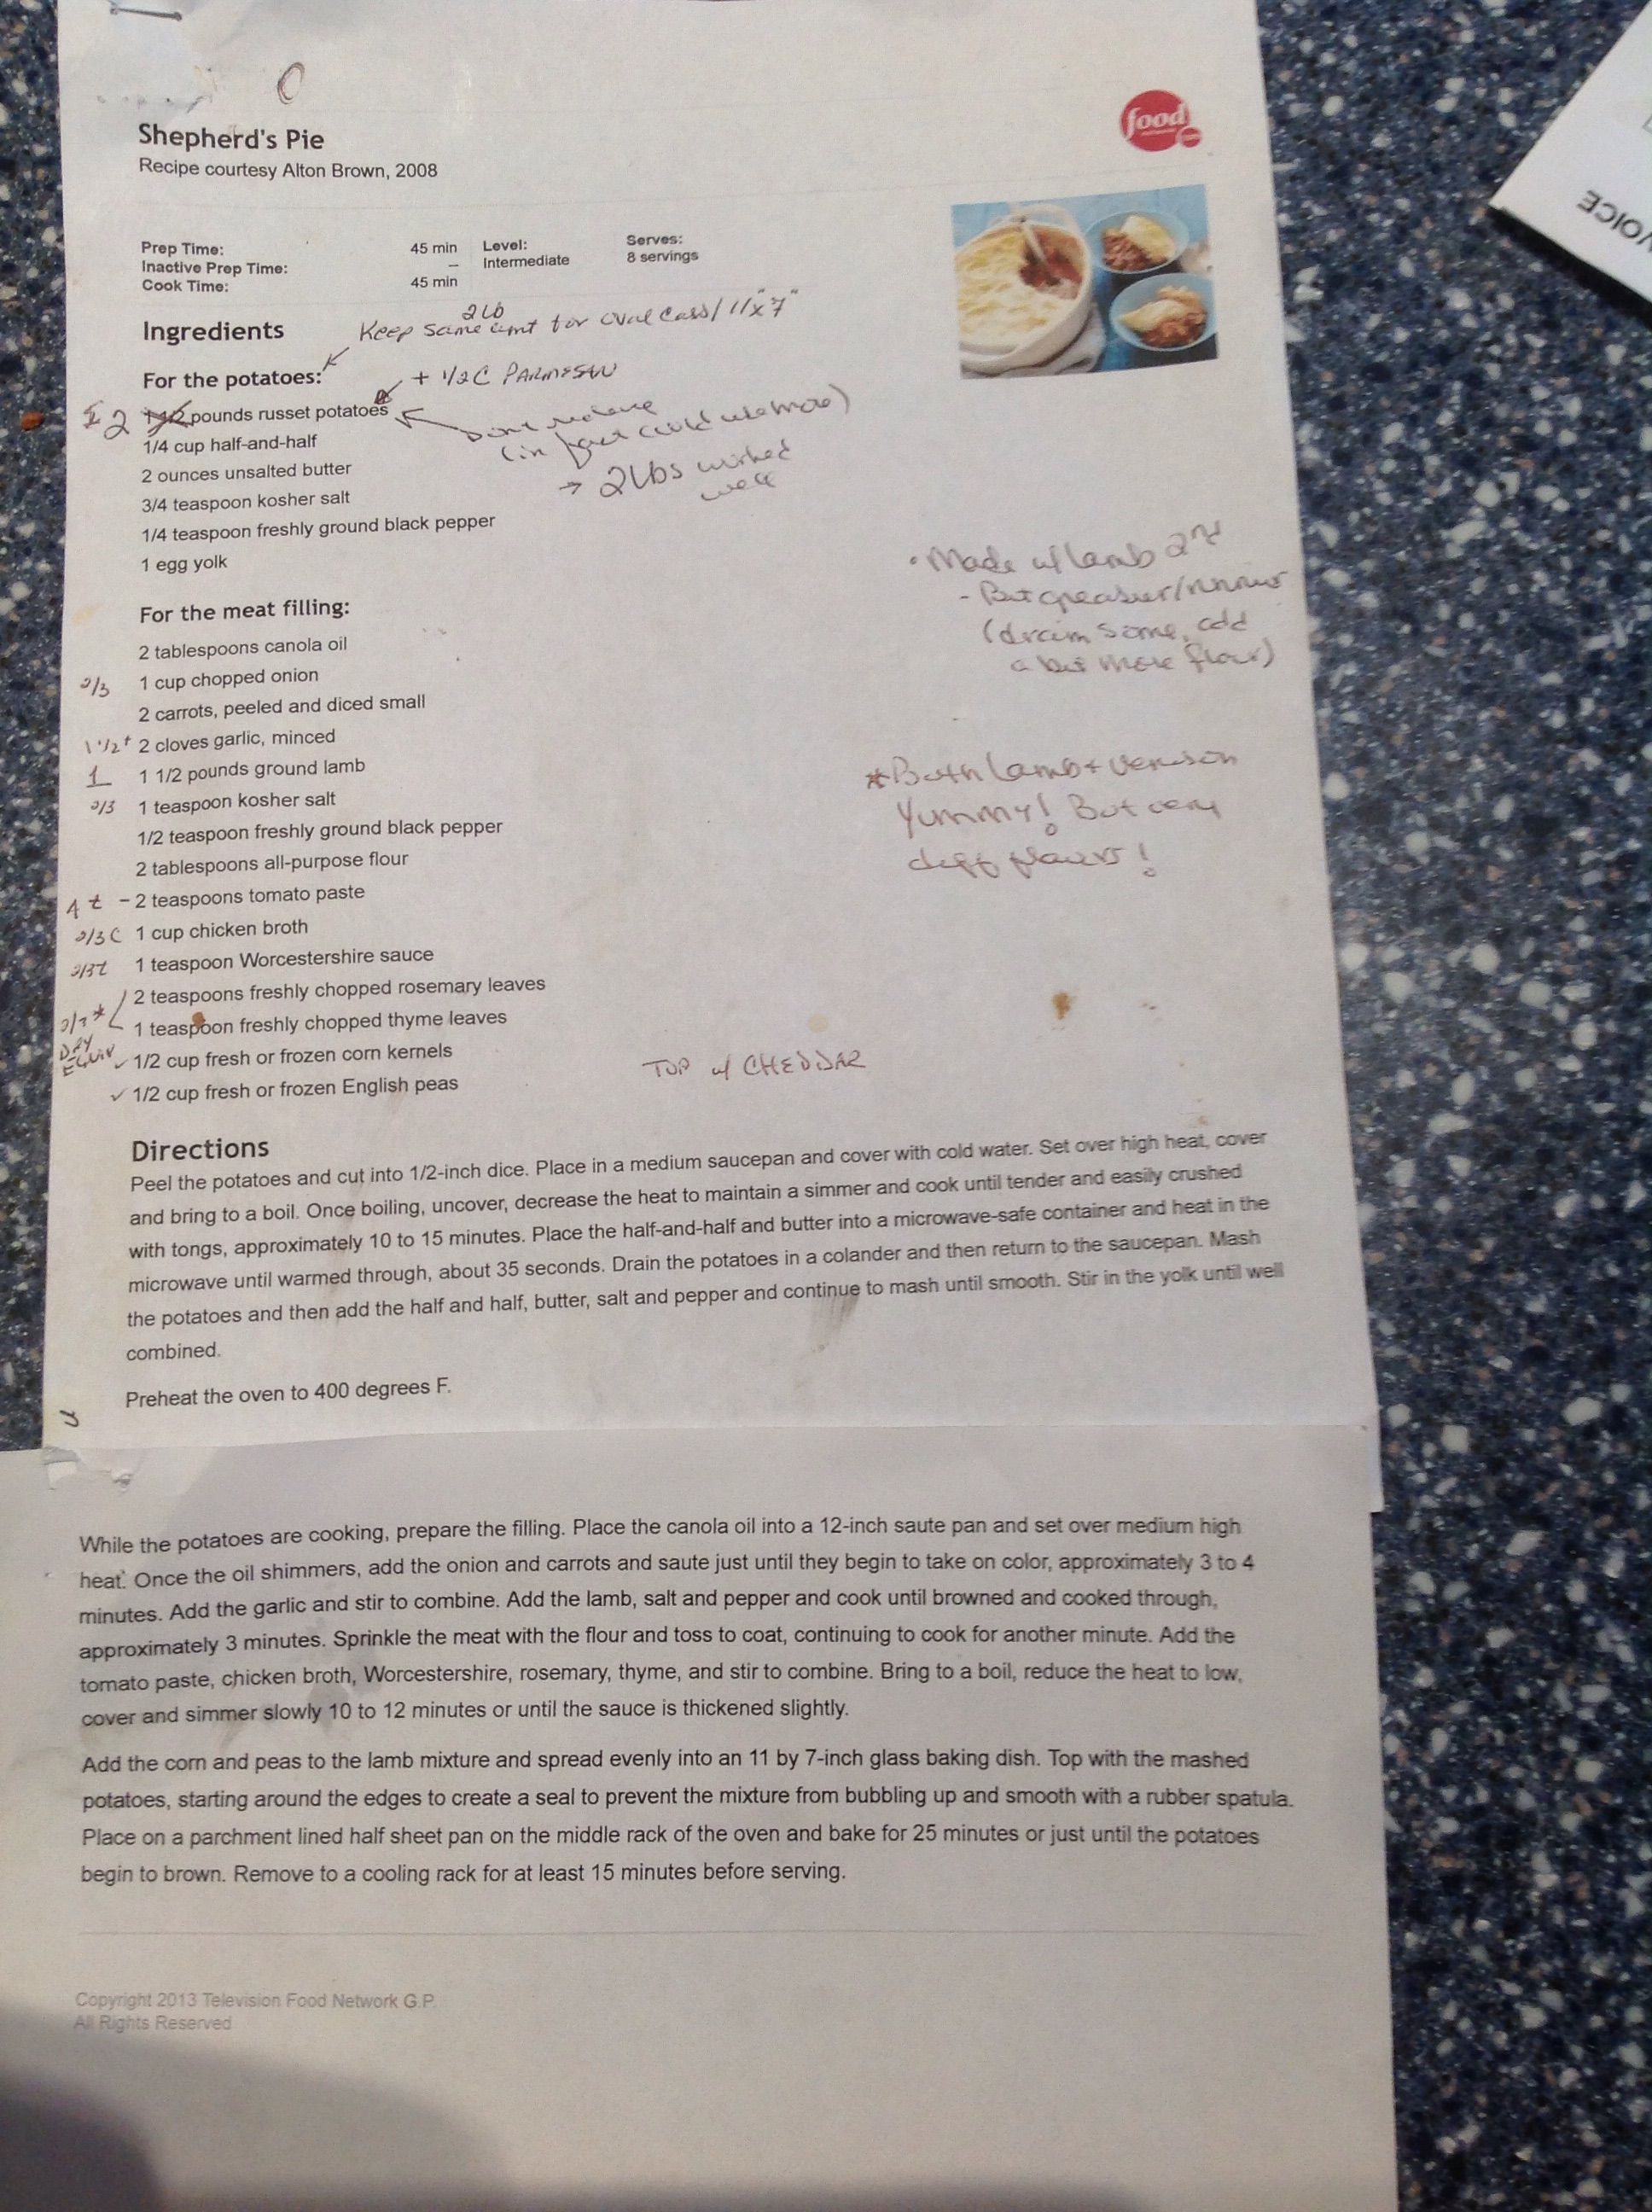 Shepherd's Pie
Recipe courtesy Alton Brown, 2008
food
Prep Time: 45 min Level: Serves:
Inactive Prep Time: – Intermediate 8 servings
Cook Time: 45 min
2 Lb
Keep same amt for oval cass/11"x7"
Ingredients
For the potatoes:
+ 1/2 C PARMESAN
2 1 1/2 pounds russet potatoes
Dont reduce
(in fact could use more)
→ 2 Lbs worked
well
1/4 cup half-and-half
2 ounces unsalted butter
3/4 teaspoon kosher salt
1/4 teaspoon freshly ground black pepper
1 egg yolk
• Made w/ lamb 2nd
- But greasier/runnier
(drain some, add
a bit more flour)
For the meat filling:
2 tablespoons canola oil
2/3 1 cup chopped onion
2 carrots, peeled and diced small
1 1/2 t 2 cloves garlic, minced
1 1 1/2 pounds ground lamb
2/3 1 teaspoon kosher salt
1/2 teaspoon freshly ground black pepper
2 tablespoons all-purpose flour
4 t - 2 teaspoons tomato paste
2/3 C 1 cup chicken broth
2/3 t 1 teaspoon Worcestershire sauce
2 teaspoons freshly chopped rosemary leaves
2/3 * 1 teaspoon freshly chopped thyme leaves
DRY
EQUIV
✓ 1/2 cup fresh or frozen corn kernels
✓ 1/2 cup fresh or frozen English peas
* Both lamb + venison
Yummy! But very
diff flavors!
TOP w/ CHEDDAR
Directions
Peel the potatoes and cut into 1/2-inch dice. Place in a medium saucepan and cover with cold water. Set over high heat, cover
and bring to a boil. Once boiling, uncover, decrease the heat to maintain a simmer and cook until tender and easily crushed
with tongs, approximately 10 to 15 minutes. Place the half-and-half and butter into a microwave-safe container and heat in the
microwave until warmed through, about 35 seconds. Drain the potatoes in a colander and then return to the saucepan. Mash
the potatoes and then add the half and half, butter, salt and pepper and continue to mash until smooth. Stir in the yolk until well
combined.
Preheat the oven to 400 degrees F.
While the potatoes are cooking, prepare the filling. Place the canola oil into a 12-inch saute pan and set over medium high
heat. Once the oil shimmers, add the onion and carrots and saute just until they begin to take on color, approximately 3 to 4
minutes. Add the garlic and stir to combine. Add the lamb, salt and pepper and cook until browned and cooked through,
approximately 3 minutes. Sprinkle the meat with the flour and toss to coat, continuing to cook for another minute. Add the
tomato paste, chicken broth, Worcestershire, rosemary, thyme, and stir to combine. Bring to a boil, reduce the heat to low,
cover and simmer slowly 10 to 12 minutes or until the sauce is thickened slightly.
Add the corn and peas to the lamb mixture and spread evenly into an 11 by 7-inch glass baking dish. Top with the mashed
potatoes, starting around the edges to create a seal to prevent the mixture from bubbling up and smooth with a rubber spatula.
Place on a parchment lined half sheet pan on the middle rack of the oven and bake for 25 minutes or just until the potatoes
begin to brown. Remove to a cooling rack for at least 15 minutes before serving.
Copyright 2013 Television Food Network G.P.
All Rights Reserved
VOICE